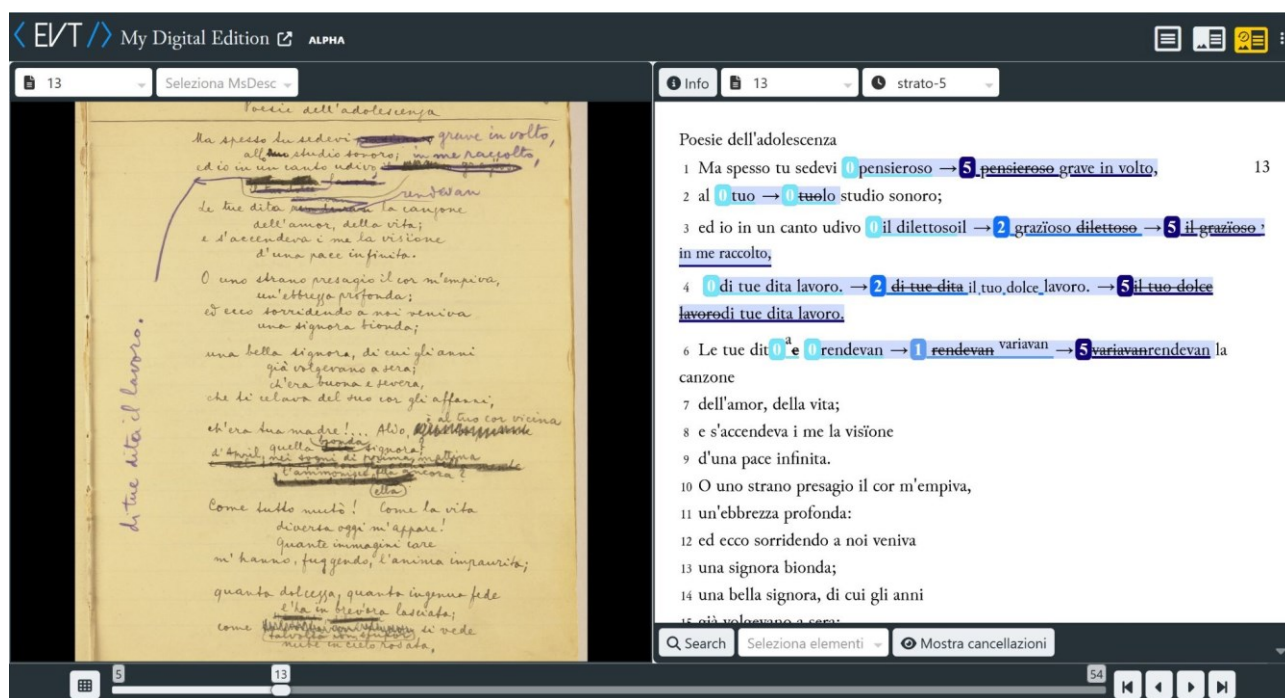 EVT My Digital Edition ALPHA
13
Seleziona MsDesc
Poesie dell'adolescenza
Ma spesso tu sedevi grave in volto,
studio sonoro; in me raccolto,
ed io in un canto udivo
rendevan
Le tue dita la canzone
dell'amor, della vita;
e s'accendeva i me la visïone
d'una pace infinita.
O uno strano presagio il cor m'empiva,
un'ebbrezza profonda:
ed ecco sorridendo a noi veniva
una signora bionda;
una bella signora, di cui gli anni
già volgevano a sera;
ch'era buona e severa,
che ti celava del suo cor gli affanni,
ch'era tua madre!... al tuo cor vicina
quella bionda signora
d'April, nei sogni di mattina
ancora?
ella
Come tutto mutò! Come la vita
diversa oggi m'appare!
Quante immagini care
m'hanno, fuggendo, l'anima impaurita;
quanta dolcezza, quanta ingenua fede
l'ha in brev'ora lasciata;
come si vede
nube in cielo rosata,
di tue dita il lavoro.
Info
13
strato-5
Poesie dell'adolescenza
1 Ma spesso tu sedevi 0 pensieroso → 5 pensieroso grave in volto, 13
2 al 0 tuo → 0 tuolo studio sonoro;
3 ed io in un canto udivo 0 il dilettosoil → 2 grazïoso dilettoso → 5 il grazïoso ,
in me raccolto,
4 0 di tue dita lavoro. → 2 di tue dita il tuo dolce lavoro. → 5 il tuo dolce
lavorodi tue dita lavoro.
6 Le tue dit 0 a e 0 rendevan → 1 rendevan variavan → 5 variavanrendevan la
canzone
7 dell'amor, della vita;
8 e s'accendeva i me la visïone
9 d'una pace infinita.
10 O uno strano presagio il cor m'empiva,
11 un'ebbrezza profonda:
12 ed ecco sorridendo a noi veniva
13 una signora bionda;
14 una bella signora, di cui gli anni
15 già volgevano a sera;
Search
Seleziona elementi
Mostra cancellazioni
5
13
54